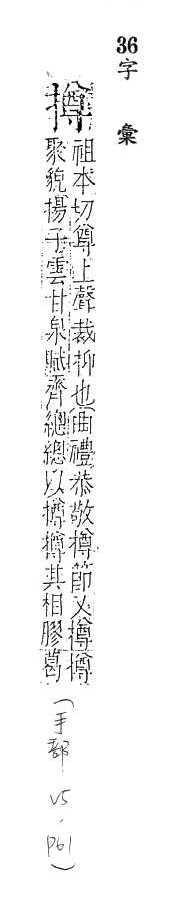 36
字彙
撙
祖本切尊上聲裁抑也曲禮恭敬撙節又撙撙
聚貌揚子雲甘泉賦齊總總以撙撙其相膠葛
(手部 V5. P61)